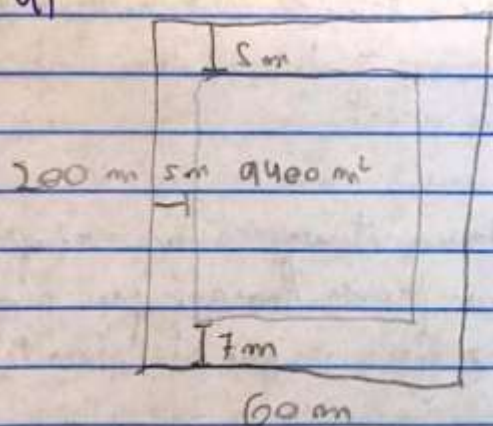 5 m
200 m 5m 9400 m²
7 m
60 m